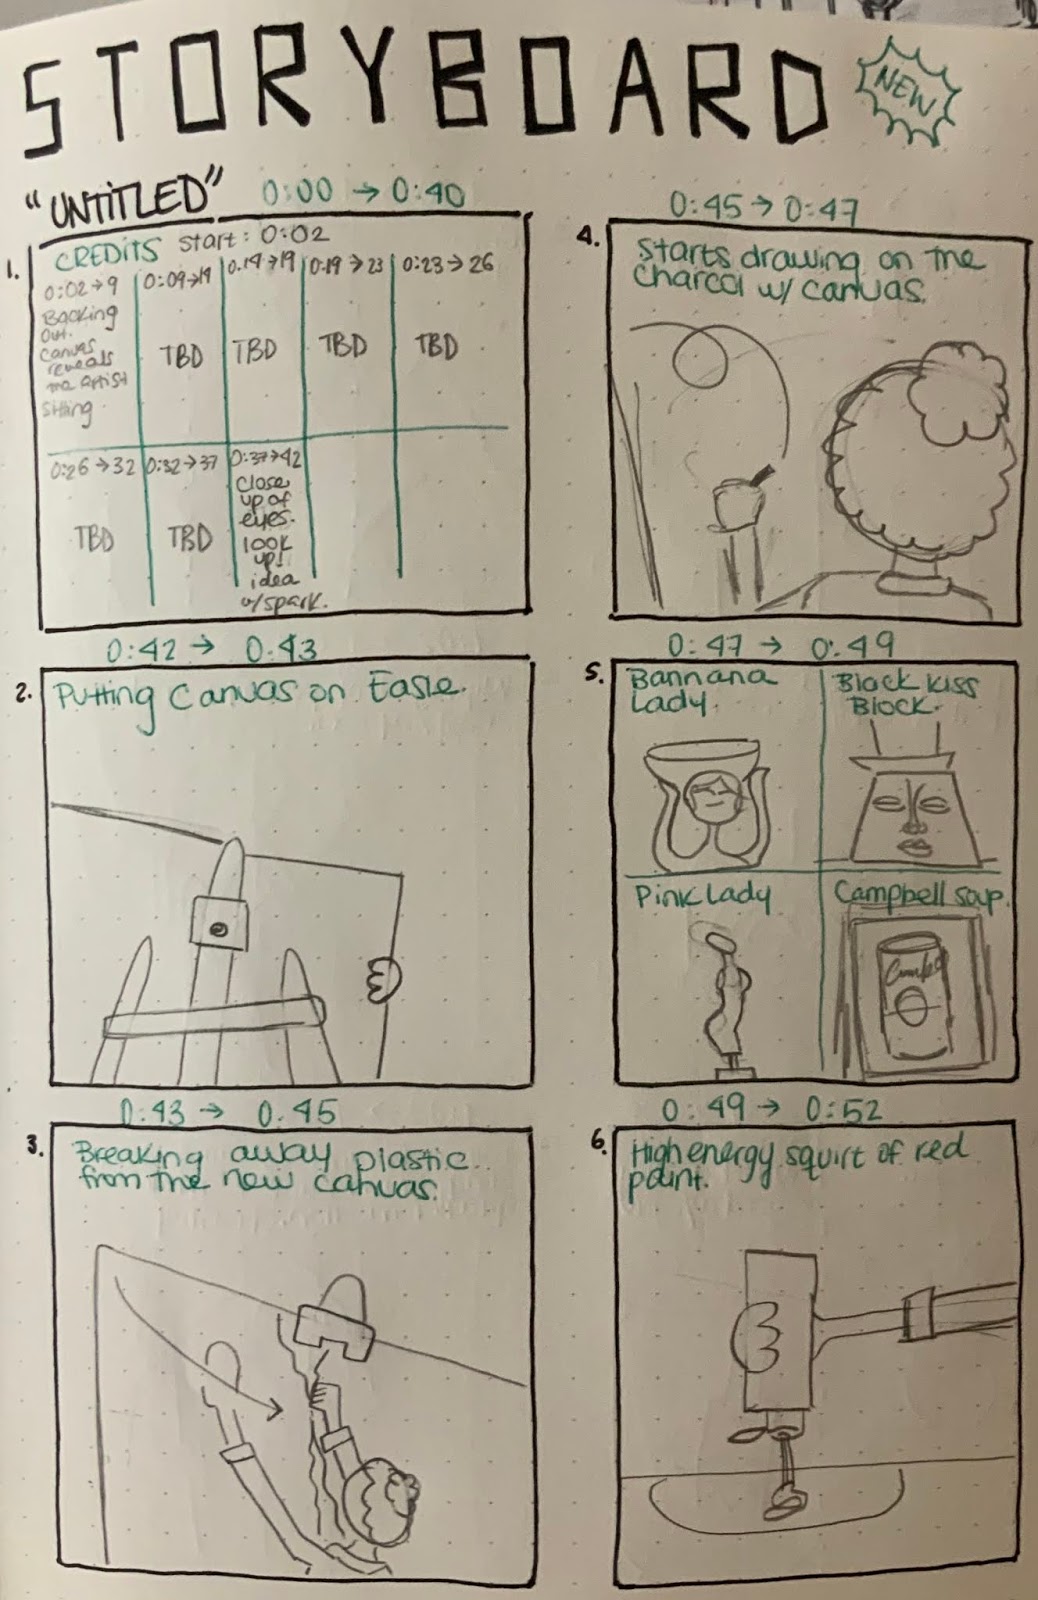 STORYBOARD
NEW
"UNTITLED" 0:00 → 0:40
1.
CREDITS start: 0:02
0:02→9
Backing
out.
Canvas
reveals
the artist
sitting.
0:09→14
TBD
0.14→19
TBD
0:19→23
TBD
0:23→26
TBD
0:26→32
TBD
0:32→37
TBD
0:37→42
Close
up of
eyes.
look
up!
idea
w/spark.
0:42 → 0.43
2.
Putting Canvas on Easle.
0:43 → 0.45
3.
Breaking away plastic
from the new canvas.
0:45→0:47
4.
Starts drawing on the
Charcol w/ canvas.
0:47 → 0:49
5.
Bannana
Lady.
Black kiss
Block.
Pink Lady
Campbell soup.
0:49 → 0:52
6.
High energy squirt of red
paint.